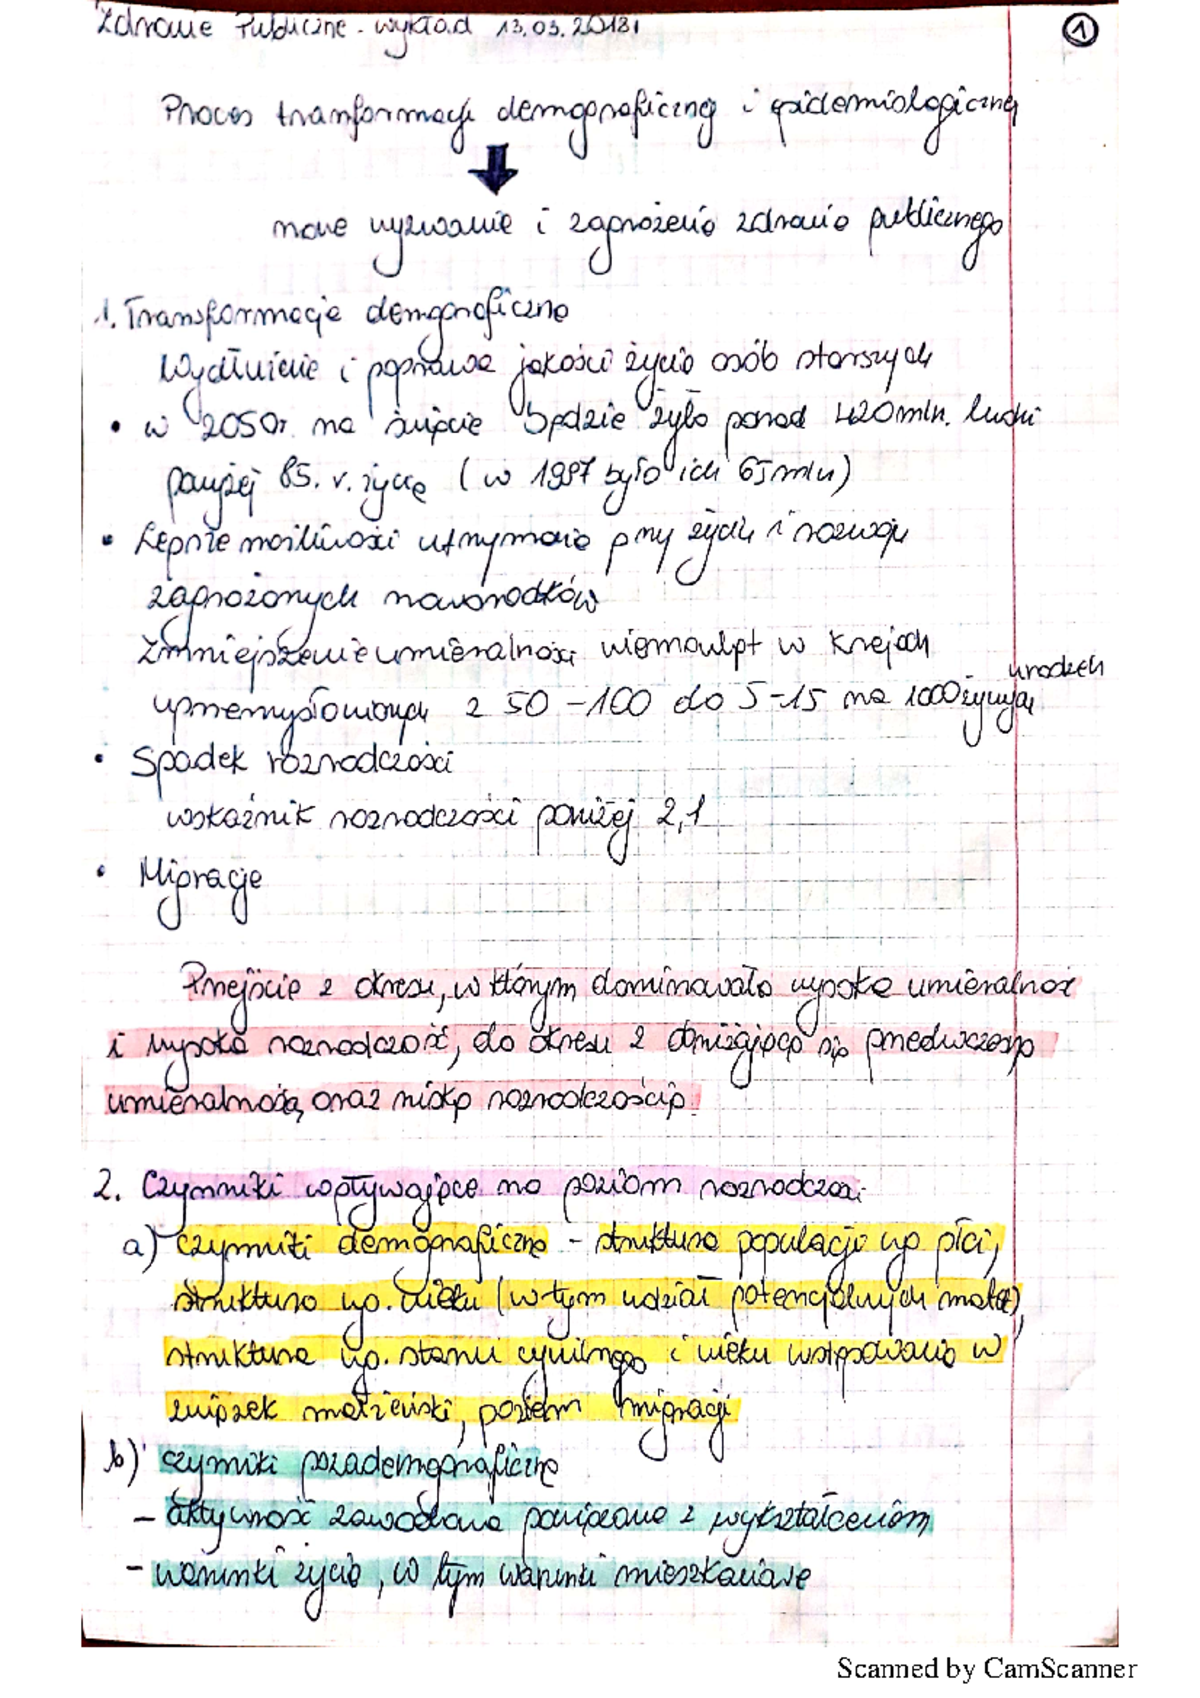 Zdrowie Publiczne - wykład 13.03.2018r
1
Proces tranformacji demograficznej i epidemiologicznej
nowe wyzwanie i zagrożenia zdrowia publicznego
1. Transformacje demograficzne
Wydłużenie i poprawa jakości życia osób starszych
• w 2050r. na świecie będzie żyło ponad 420mln. ludzi
powyżej 65. r. życia (w 1997 było ich 65mln)
• Lepsze możliwości utrzymania przy życiu i rozwoju
zagrożonych noworodków
Zmniejszenie umieralności niemowląt w krajach
urodzeń
uprzemysłowionych z 50-100 do 5-15 na 1000 żywych
• Spadek rozrodczości
wskaźnik rozrodczości poniżej 2,1
• Migracje
Przejście z okresu, w którym dominowała wysoka umieralność
i wysoka rozrodczość, do okresu z obniżającą się przedwczesną
umieralnością oraz niską rozrodczością.
2. Czynniki wpływające na poziom rozrodczości
a) czynniki demograficzne - struktura populacji wg płci,
struktura wg. wieku (w tym udział potencjalnych matek),
struktura wg. stanu cywilnego i wieku wstępowania w
związek małżeński, poziom imigracji
b) czynniki pozademograficzne
- aktywność zawodowa powiązana z wykształceniem
- warunki życia, w tym warunki mieszkaniowe
Scanned by CamScanner